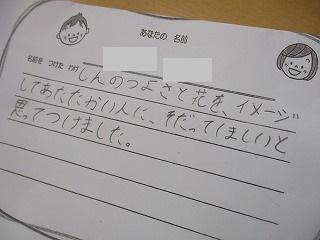 あなたの 名前
名前を つけた わけ
しんのつよさと花を、イメージ
してあたたかい人に、そだってほしいと
思ってつけました。